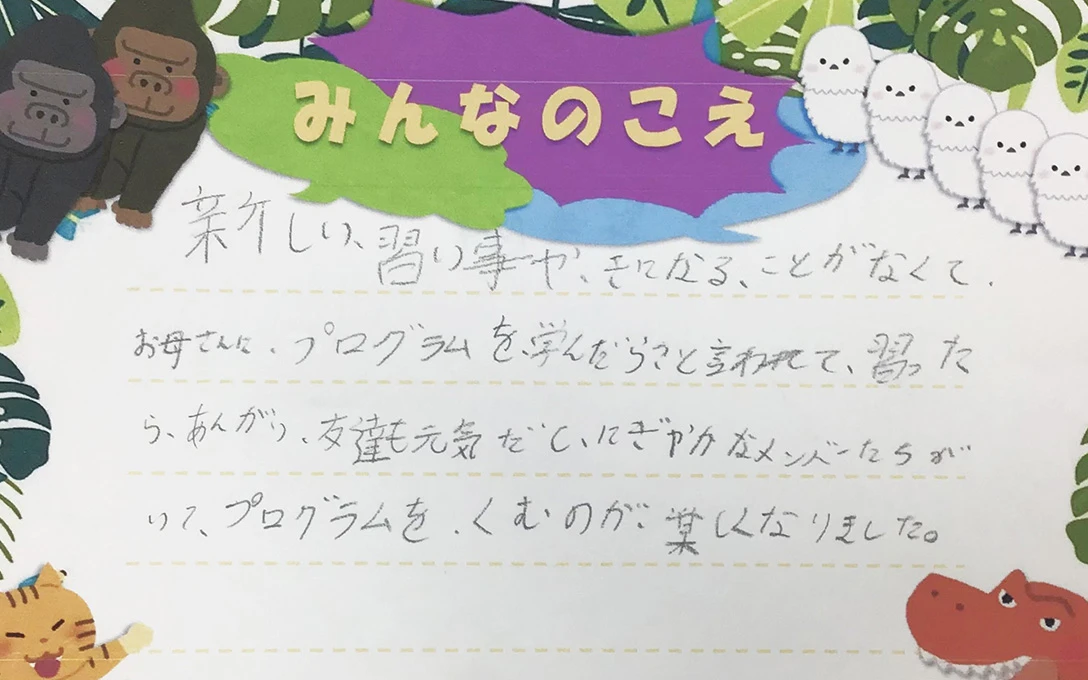 みんなのこえ
新しい、習い事や、きになる、ことがなくて、
お母さんに、プログラムを、学んだらさと言われて、習った
ら、あんがい、友達も元気だし、にぎやかなメンバーたちが
いて、プログラムを、くむのが、楽しくなりました。